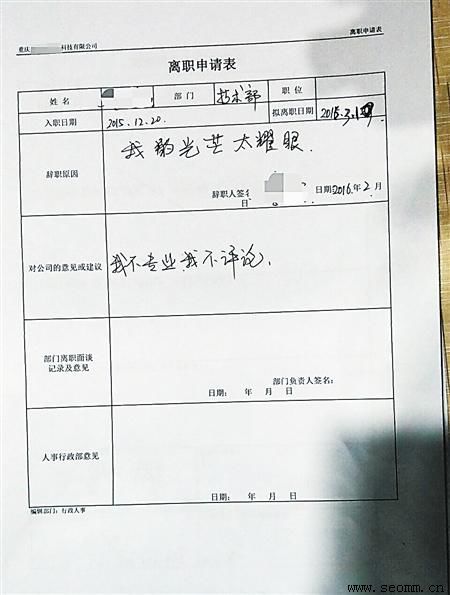 重庆 科技有限公司 离职申请表
离职申请表
姓名 部门 技术部 职位
入职日期 2015.12.20. 拟离职日期 2015.3.1
辞职原因 我的光芒太耀眼.
辞职人签名 日期:2016年2月
日
对公司的意见或建议 我不专业,我不评论,
部门离职面谈
记录及意见
部门负责人签名:
日期: 年 月 日
人事行政部意见
日期: 年 月 日
编制部门:行政人事
www.seomm.cn